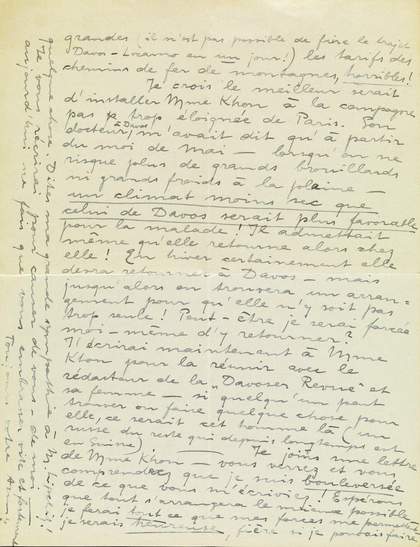 grandes (il n'est pas possible de faire le trajet
Davos – Locarno en un jour!) les tarifs des
chemins de fer de montagnes, horribles!
Je crois le meilleur serait
d'installer Mme Khon à la campagne
pas trop éloignée de Paris. Son
docteur à Davos m'avait dit qu'à partir
du moi de mai – lorsqu'on ne
risque plus de grands brouillards
ni grands froids à la plaine –
un climat moins sec que
celui de Davos serait plus favorable
pour la malade! Il admettait
même qu'elle retourne alors chez
elle! En hiver certainement elle
devra retourner à Davos – mais
jusqu'alors on trouvera un arran-
gement pour qu'elle n'y soit pas
trop seule! Peut-être je serai forcée
moi-même d'y retourner?
J'écrirai maintenant à Mme
Khon pour la réunir avec le
rédacteur de la „Davoser Revue" et
sa femme – si quelqu'un peut
trouver ou faire quelque chose pour
elle, ce serait cet homme là (un
russe du reste qui depuis longtemps est
en Suisse) – Je joins une lettre
de Mme Khon – vous verrez et vous
comprendrez que je suis bouleversée
de ce que vous m'écriviez! Espérons
que tout s'arrangera le mieux possible
je ferai tout ce que mes forces me permettent
je serais heureuse, fière si je pouvais faire
quelque chose. Dites ma grande sympathie à
Je vous récrirai pour causer de vous – de moi –
aujourd'hui ne fais que vous embrasser vite et
Toujours votre